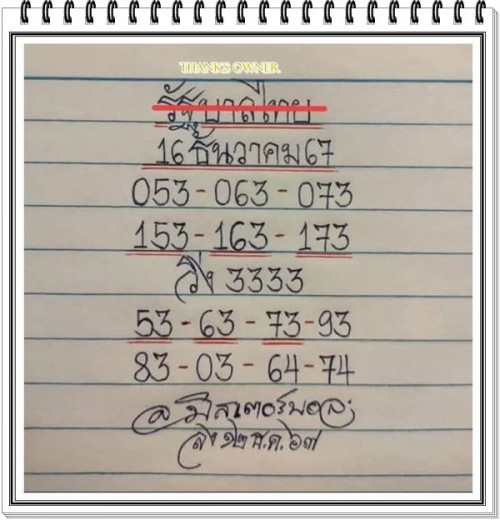 THANKS OWNER.
รัฐบาลไทย
16 ธันวาคม 67
053 - 063 - 073
153 - 163 - 173
วิ่ง 3333
53 - 63 - 73 - 93
83 - 03 - 64 - 74
๑๒ ธ.ค. ๖๗